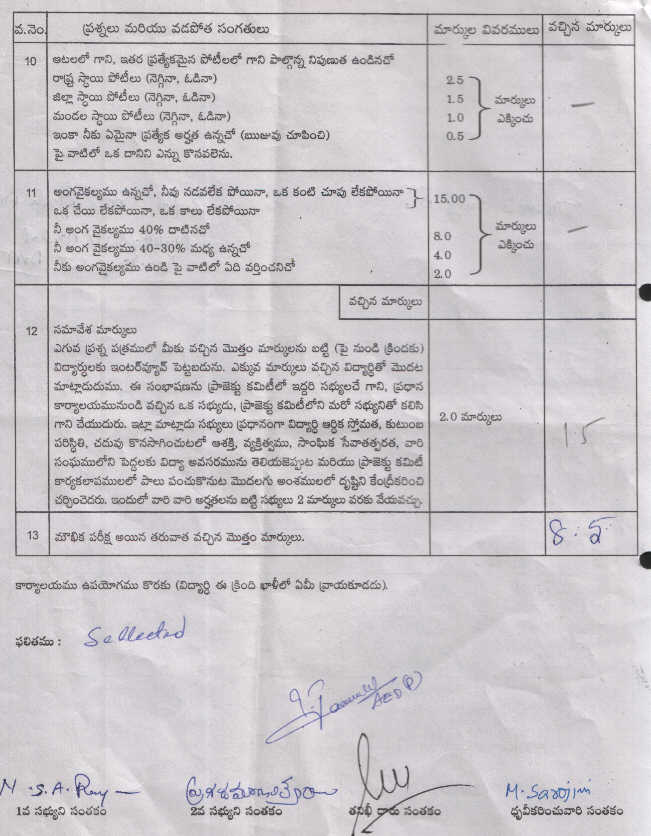 వ.నెం. ప్రశ్నలు మరియు వడపోత సంగతులు మార్కుల వివరములు వచ్చిన మార్కులు
10 ఆటలలో గాని, ఇతర ప్రత్యేకమైన పోటీలలో గాని పాల్గొన్న నిపుణుత ఉండినచో
రాష్ట్ర స్థాయి పోటీలు (నెగ్గినా, ఓడినా) 2.5
జిల్లా స్థాయి పోటీలు (నెగ్గినా, ఓడినా) 1.5 మార్కులు —
మండల స్థాయి పోటీలు (నెగ్గినా, ఓడినా) 1.0 ఎక్కించు
ఇంకా నీకు ఏమైనా ప్రత్యేక అర్హత ఉన్నచో (ఋజువు చూపించి) 0.5
పై వాటిలో ఒక దానిని ఎన్ను కొనవలెను.
11 అంగవైకల్యము ఉన్నచో, నీవు నడవలేక పోయినా, ఒక కంటి చూపు లేకపోయినా 15.00
ఒక చేయి లేకపోయినా, ఒక కాలు లేకపోయినా
నీ అంగ వైకల్యము 40% దాటినచో 8.0 మార్కులు —
నీ అంగ వైకల్యము 40-30% మధ్య ఉన్నచో 4.0 ఎక్కించు
నీకు అంగవైకల్యము ఉండి పై వాటిలో ఏది వర్తించనిచో 2.0
వచ్చిన మార్కులు
12 సమావేశ మార్కులు
ఎగువ ప్రశ్న పత్రములో మీకు వచ్చిన మొత్తం మార్కులను బట్టి (పై నుండి క్రిందకు)
విద్యార్థులకు ఇంటర్‌వ్యూవ్ పెట్టబడును. ఎక్కువ మార్కులు వచ్చిన విద్యార్థితో మొదట
మాట్లాడుదుము. ఈ సంభాషణను ప్రాజెక్టు కమిటీలో ఇద్దరి సభ్యులచే గాని, ప్రధాన
కార్యాలయమునుండి వచ్చిన ఒక సభ్యుడు, ప్రాజెక్టు కమిటీలోని మరో సభ్యునితో కలిసి
గాని చేయుదురు. ఇట్లా మాట్లాడు సభ్యులు ప్రధానంగా విద్యార్థి ఆర్థిక స్తోమత, కుటుంబ 2.0 మార్కులు 1.5
పరిస్థితి, చదువు కొనసాగించుటలో ఆశక్తి, వ్యక్తిత్వము, సాంఘిక సేవాతత్పరత, వారి
సంఘములోని పెద్దలకు విద్యా అవసరమును తెలియజెప్పుట మరియు ప్రాజెక్టు కమిటీ
కార్యకలాపములలో పాలు పంచుకొనుట మొదలగు అంశములలో దృష్టిని కేంద్రీకరించి
చర్చించెదరు. ఇందులో వారి వారి అర్హతలను బట్టి సభ్యులు 2 మార్కులు వరకు వేయవచ్చు.
13 మౌఖిక పరీక్ష అయిన తరువాత వచ్చిన మొత్తం మార్కులు. 8.5
కార్యాలయము ఉపయోగము కొరకు (విద్యార్థి ఈ క్రింది ఖాళీలో ఏమీ వ్రాయకూడదు).
ఫలితము : Sellected
M. Sarojini
1వ సభ్యుని సంతకం 2వ సభ్యుని సంతకం తనిఖీ దారు సంతకం ధృవీకరించువారి సంతకం